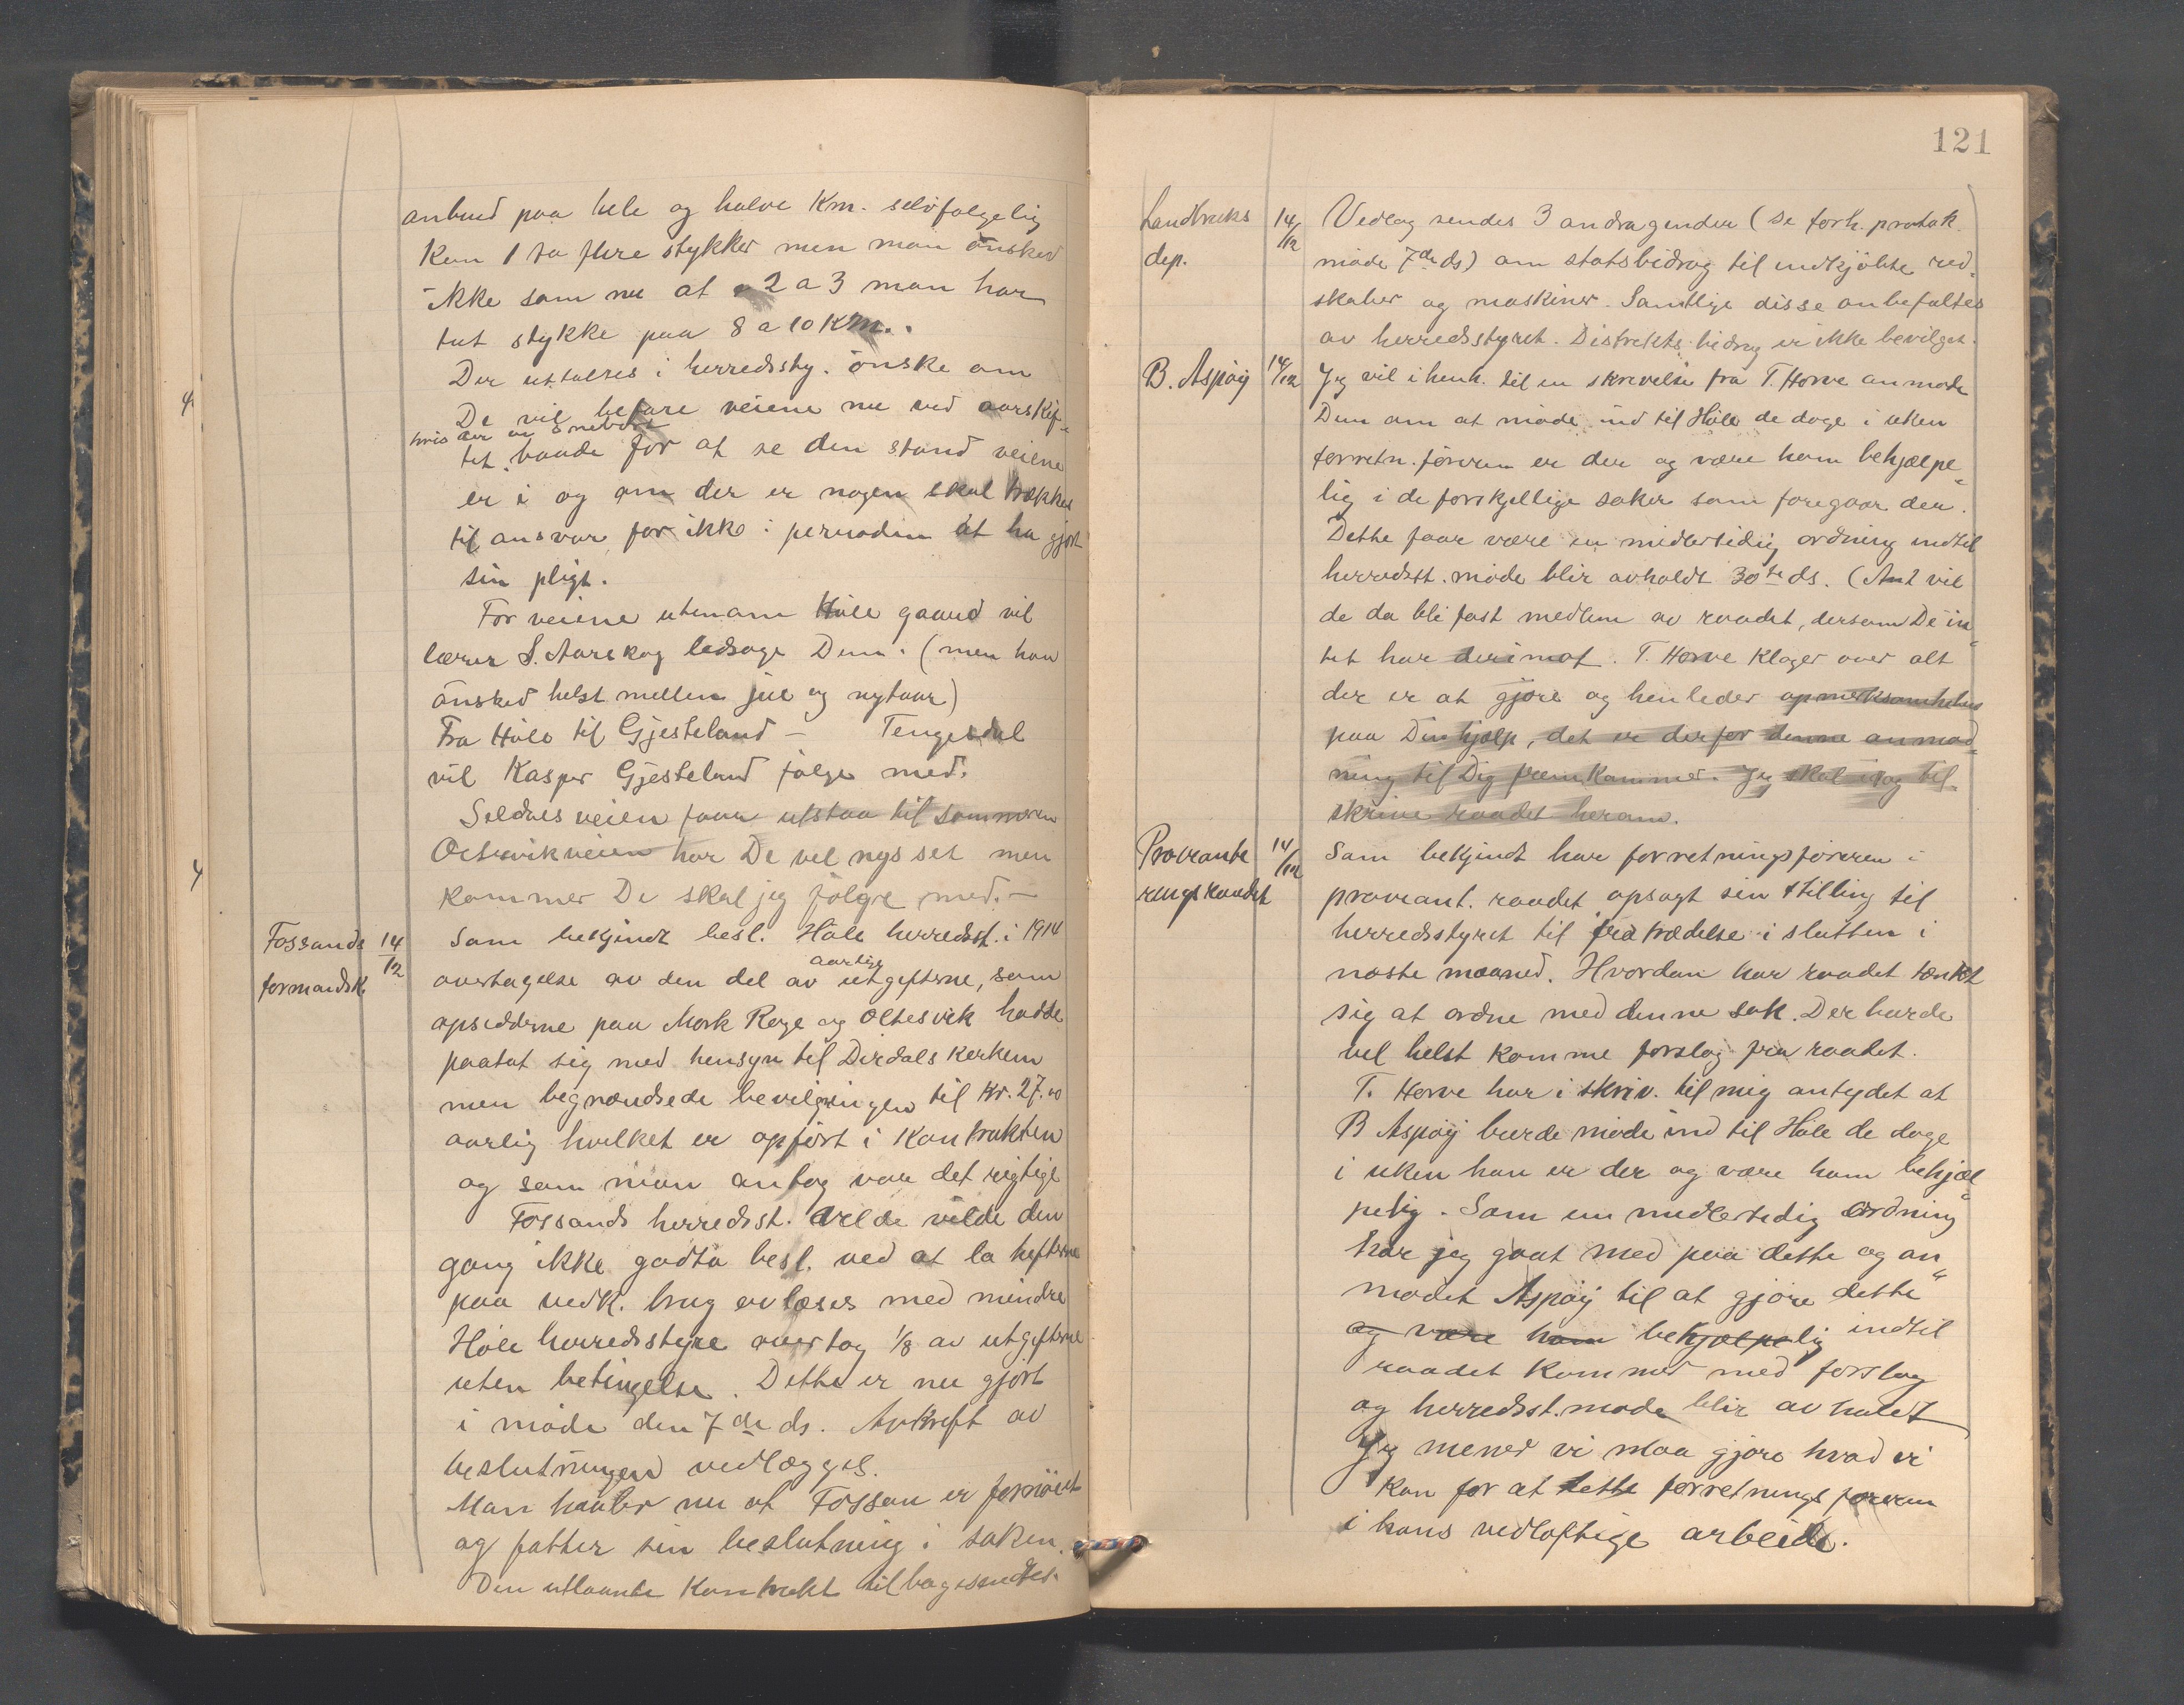 anbud paa hele og halve Km. selvfølgelig
kan 1 ta flere stykker men man ønsker
ikke som nu at 2 a 3 man har
tat stykke paa 8 a 10 Km.
Der uttaltes i herredssty. ønske om
De vil befare veiene nu ved aarsskif-
hvis der er snebart
tet, baade for at se den stand veiene
er i og om der er nogen skal trækkes
til ansvar for ikke i perioden at ha gjort
sin pligt.
For veiene utenom Høle gaard vil
lærer S. Aarskog ledsage Dem. (men han
ønsker helst mellem jul og nytaar)
Fra Høle til Gjesteland – Tengesdal
vil Kasper Gjesteland følge med.
Seldalsveien faar utstaa til sommeren
Oltesvikveien har De vel nys set men
kommer De skal jeg følge med. –
Fossands
formandsk.
14/12
Som bekjendt besl. Høle herredsst. i 1914
overtagelse av den del av aarlige utgifterne, som
opsidderne paa Mork Rege og Oltesvik hadde
paatat sig med hensyn til Dirdals kirken
men begrændsede bevilgningen til Kr. 27.00
aarlig hvilket er opført i Kontrakten
og som man antog var det rigtige
Fossands herredsst. vilde den
gang ikke godta besl. ved at la hefterne
paa vedk. brug avløses med mindre
Høle herredsstyre overtog 1/8 av utgifterne
uten betingelse. Dette er nu gjort
i møde den 7de ds. Avskrift av
beslutningen vedlægges.
Man haaber nu at Fossan er fornøiet
og fatter sin beslutning i saken.
Den utlaante Kontrakt tilbagesendtes.
121
Landbruks
dep.
14/12
Vedlag sendes 3 andragender (se forh. protok.
møde 7de ds) om statsbidrag til indkjøbte red-
skaber og maskiner. Samtlige disse anbefaltes
av herredsstyret. Distrikts bidrag er ikke bevilget.
B. Aspøy
14/12
Jeg vil i henh. til en skrivelse fra T. Horve anmode
Dem om at møde ind til Høle de dage i uken
forretn.føreren er der og være ham behjælpe-
lig i de forskjellige saker som foregaar der.
Dette faar være en midlertidig ordning indtil
herredsst. møde blir avholdt 30te ds. (Ant vil
de da bli fast medlem av raadet, dersom De in-
tet har derimot. T. Horve klager over alt
der er at gjøre og henleder opmerksomheten
paa Din hjælp, det er derfor denne anmod-
ning til Dig fremkommer. Jeg skal idag til-
skrive raadet herom.
Proviante
ringsraadet
14/12
Som bekjendt har forretningsføreren i
proviant. raadet opsagt sin stilling til
herredsstyret til fratrædelse i slutten i
næste maaned. Hvordan har raadet tænkt
sig at ordne med denne sak. Der burde
vel helst komme forslag fra raadet.
T. Horve har i skriv. til mig antydet at
B Aspøy burde møde ind til Høle de dage
i uken han er der og være ham behjæl-
pelig. Som en midlertidig ordning
har jeg gaat med paa dette og an-
modet Aspøy til at gjøre dette
og være ham behjælpelig indtil
raadet kommer med forslag
og herredsst.møde blir avholdt
Jeg mener vi maa gjøre hvad vi
kan for at lette forretningsføreren
i hans vedløftige arbeide.